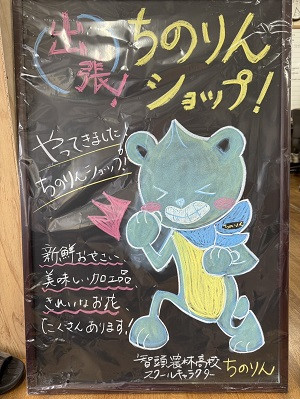 出張!
ちのりん
ショップ!
やってきました!
ちのりんショップ!
新鮮おやさい、
美味しい加工品
きれいなお花、
たくさんあります!
ちのりん
智頭農林高校
スクールキャラクター
ちのりん